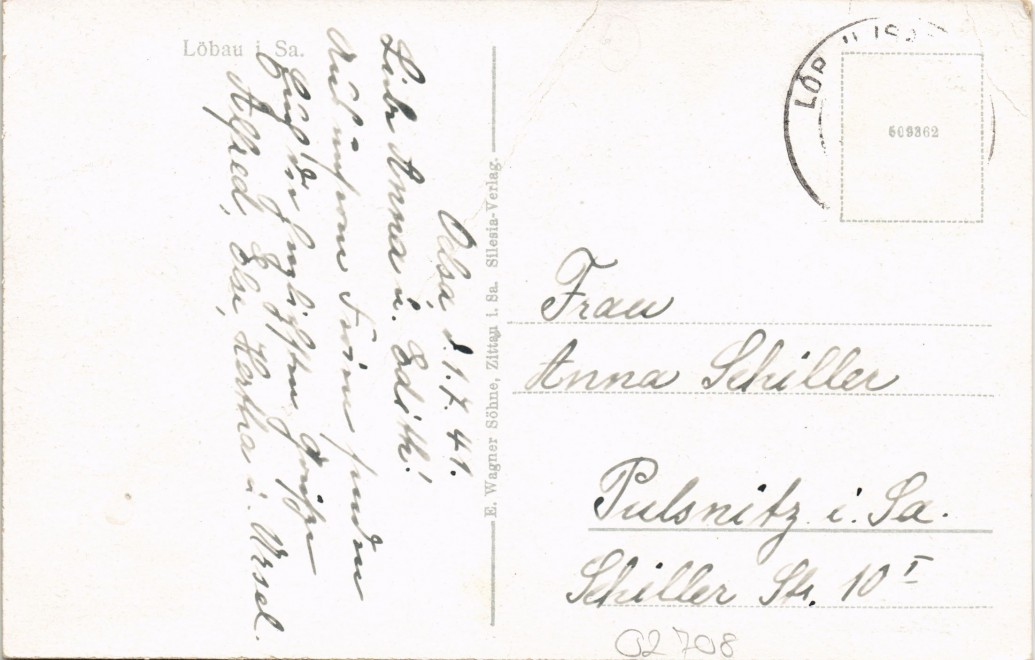 Löbau i. Sa.
Oelsa, d. 1.7.41.
Liebe Anna u. Edith!
Aus unserem Ferien senden
Euch die herzlichsten Grüße
Alfred, Else, Hertha u. Ursel.
E. Wagner Söhne, Zittau i. Sa. Silesia-Verlag.
LÖB
609362
Frau
Anna Schiller
Pulsnitz i. Sa.
Schiller Str. 10 I
02708